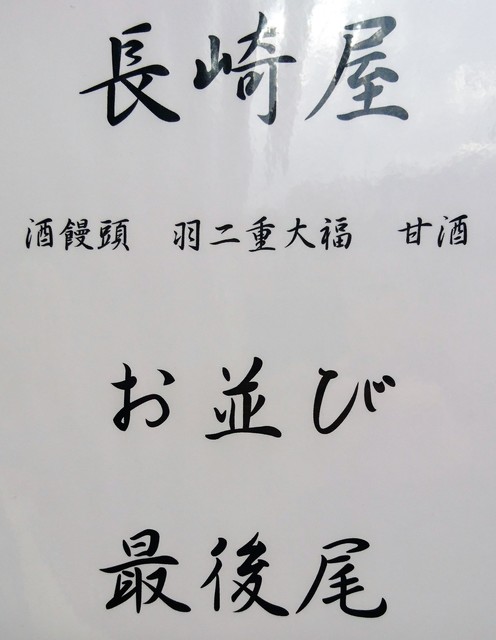 長崎屋
酒饅頭　羽二重大福　甘酒
お並び
最後尾